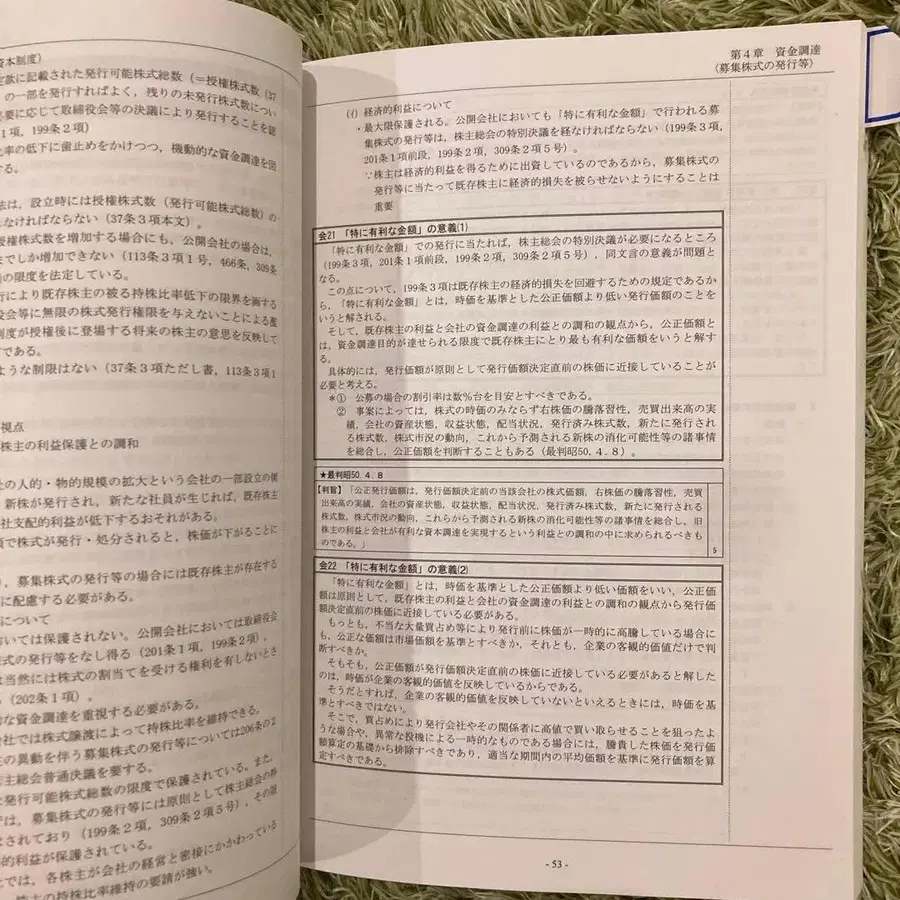 資本制度)
定款に記載された発行可能株式総数(=授権株式数(37
)の一部を発行すればよく,残りの未発行株式数につい
必要に応じて取締役会等の決議により発行することを認
1項,199条2項)
比率の低下に歯止めをかけつつ,機動的な資金調達を図
する。
法は,設立時には授権株式数(発行可能株式総数)の
なければならない(37条3項本文)。
授権株式数を増加する場合にも,公開会社の場合は,
までしか増加できない(113条3項1号,466条,309条
の限度を法定している。
行により既存株主の被る持株比率低下の限界を画する
役会等に無限の株式発行権限を与えないことによる濫
制度が授権後に登場する将来の株主の意思を反映して
である。
ような制限はない(37条3項ただし書,113条3項1
視点
株主の利益保護との調和
社の人的・物的規模の拡大という会社の一部設立の側
新株が発行され,新たな社員が生じれば,既存株主
社支配的利益が低下するおそれがある。
額で株式が発行・処分されると,株価が下がることに
,募集株式の発行等の場合には既存株主が存在する
に配慮する必要がある。
について
おいては保護されない。公開会社においては取締役会
式の発行等をなし得る(201条1項,199条2項),
は当然には株式の割当てを受ける権利を有しないとさ
(202条1項)。
的な資金調達を重視する必要がある。
会社では株式譲渡によって持株比率を維持できる。
の異動を伴う募集株式の発行等については206条の2
主総会普通決議を要する。
は発行可能株式総数の限度で保護されている。また,
では,募集株式の発行等には原則として株主総会の特
されており(199条2項,309条2項5号),その限
的利益が保護されている。
では,各株主が会社の経営と密接にかかわっている
株主の持株比率維持の要請が強い。
第4章 資金調達
(募集株式の発行等)
(f) 経済的利益について
・最大限保護される。公開会社においても「特に有利な金額」で行われる募
集株式の発行等は,株主総会の特別決議を経なければならない(199条3項,
201条1項前段,199条2項,309条2項5号)。
∵株主は経済的利益を得るために出資しているのであるから,募集株式の
発行等に当たって既存株主に経済的損失を被らせないようにすることは
重要
会21 「特に有利な金額」の意義(1)
「特に有利な金額」での発行に当たれば,株主総会の特別決議が必要になるところ
(199条3項,201条1項前段,199条2項,309条2項5号),同文言の意義が問題と
なる。
この点について,199条3項は既存株主の経済的損失を回避するための規定であるか
ら,「特に有利な金額」とは,時価を基準とした公正価額より低い発行価額のことを
いうと解される。
そして,既存株主の利益と会社の資金調達の利益との調和の観点から,公正価額と
は,資金調達目的が達せられる限度で既存株主にとり最も有利な価額をいうと解す
る。
具体的には,発行価額が原則として発行価額決定直前の株価に近接していることが
必要と考える。
*① 公募の場合の割引率は数%台を目安とすべきである。
② 事案によっては,株式の時価のみならず右株価の騰落習性,売買出来高の実
績,会社の資産状態,収益状態,配当状況,発行済み株式数,新たに発行さ
れる株式数,株式市況の動向,これから予測される新株の消化可能性等の諸事情
を総合し,公正価額を判断することもある(最判昭50.4.8)。
★最判昭50.4.8
【判旨】「公正発行価額は,発行価額決定前の当該会社の株式価額,右株価の騰落習性,売買
出来高の実績,会社の資産状態,収益状態,配当状況,発行済み株式数,新たに発行される
株式数,株式市況の動向,これらから予測される新株の消化可能性等の諸事情を総合し,旧
株主の利益と会社が有利な資本調達を実現するという利益との調和の中に求められるべきも
のである。」
5
会22 「特に有利な金額」の意義(2)
「特に有利な金額」とは,時価を基準とした公正価額より低い価額をいい,公正価
額は原則として,既存株主の利益と会社の資金調達の利益との調和の観点から発行価
額決定直前の株価に近接している必要がある。
もっとも,不当な大量買占め等により発行前に株価が一時的に高騰している場合に
も,公正な価額は市場価額を基準とすべきか,それとも,企業の客観的価値だけで判
断すべきか。
そもそも,公正価額が発行価額決定直前の株価に近接している必要があると解した
のは,時価が企業の客観的価値を反映しているからである。
そうだとすれば,企業の客観的価値を反映していないといえるときには,時価を基
準とすべきではない。
そこで,買占めにより発行会社やその関係者に高値で買い取らせることを狙ったよ
うな場合や,異常な投機による一時的なものである場合には,騰貴した株価を発行価
額算定の基礎から排除すべきであり,適当な期間内の平均価額を基準に発行価額を算
定すべきである。
- 53 -